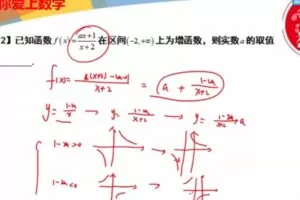 你爱上数学
2】已知函数 f(x)=\frac{ax+1}{x+2} 在区间(-2,+∞)上为增函数，则实数a的取值
f(x)=\frac{a(x+2)-2a+1}{x+2} = a + \frac{1-2a}{x+2}
y=\frac{1-2a}{x} → y=\frac{1-2a}{x+2} → y=\frac{1-2a}{x+2}+a
1-2a>0
1-2a<0